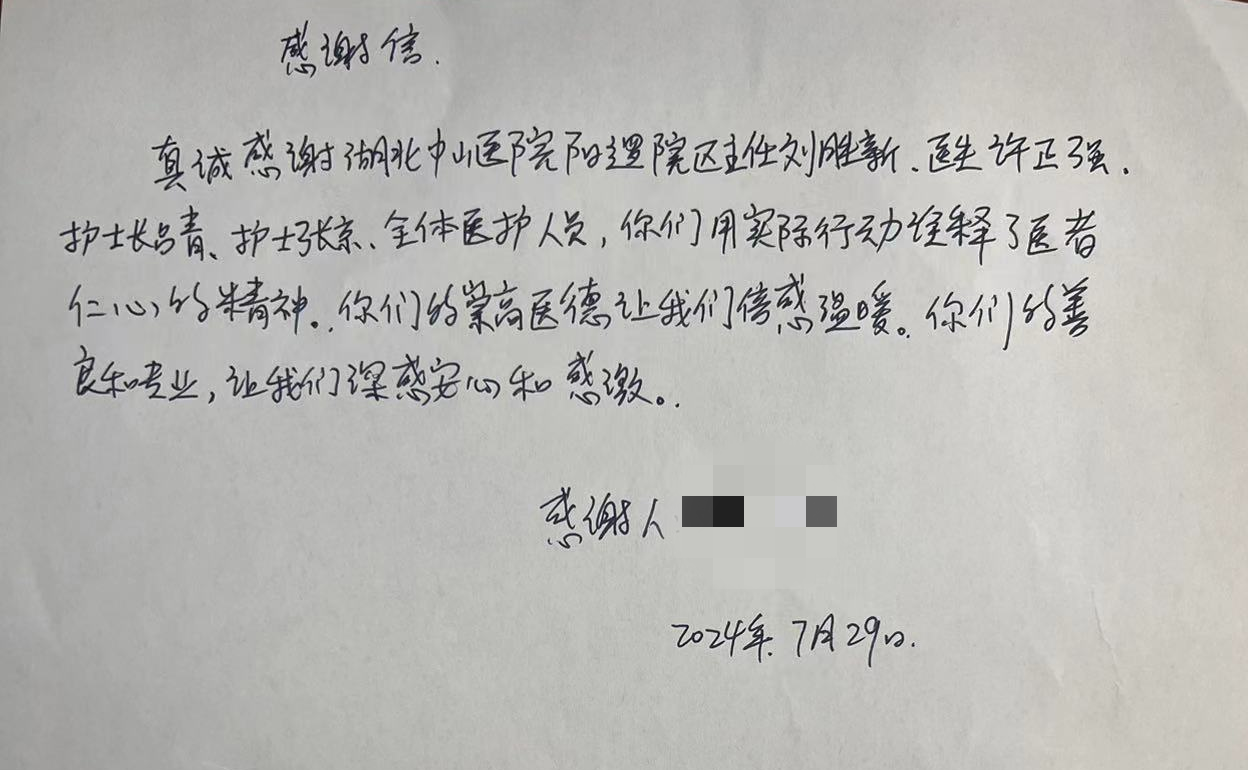 感谢信.
真诚感谢湖北中山医院阳逻院区主任刘胜新.医生许正强.
护士长吕青、护士张京、全体医护人员,你们用实际行动诠释了医者
仁心的精神。.你们的崇高医德让我们倍感温暖。你们的善
良和专业,让我们深感安心和感激。.
感谢人
2024年.7月29日.